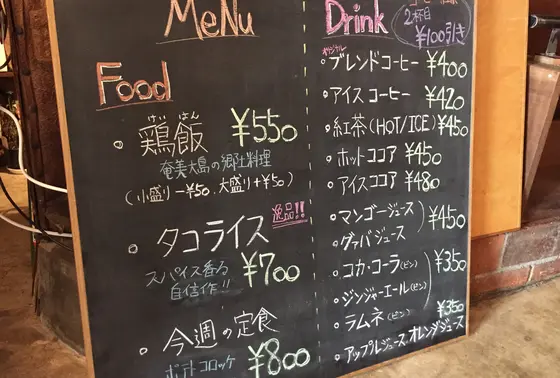 MeNu
Food
鶏飯 ¥550
奄美大島の郷土料理
(小盛り-¥50、大盛り+¥50)
逸品!!
タコライス
スパイス香る
自信作!! ¥700
今週の定食
ポテトコロッケ ¥800
Drink
2杯目
¥100引き
オリジナル
ブレンドコーヒー ¥400
アイスコーヒー ¥420
紅茶(HOT/ICE) ¥450
ホットココア ¥450
アイスココア ¥480
マンゴージュース
グァバジュース ¥450
コカ・コーラ(ビン)
ジンジャーエール(ビン) ¥350
ラムネ(ビン)
¥350
アップルジュース、オレンジジュース